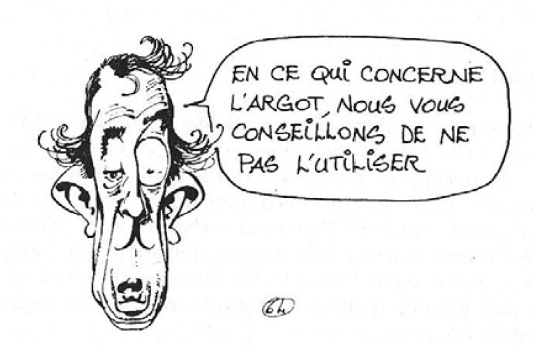 EN CE QUI CONCERNE
L'ARGOT, NOUS VOUS
CONSEILLONS DE NE
PAS L'UTILISER